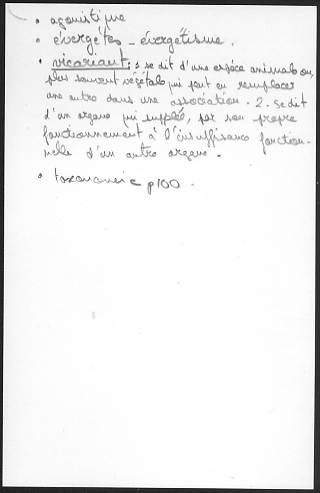 • agonistique
• évergétes _ évergétisme.
• vicariant : 1 se dit d'une espèce animale ou,
plus souvent végétale qui peut en remplacer
une autre dans une association. 2. se dit
d'un organe qui supplée, par son propre
fonctionnement à l'insuffisance fonction-
nelle d'un autre organe.
• taxonomie p100.